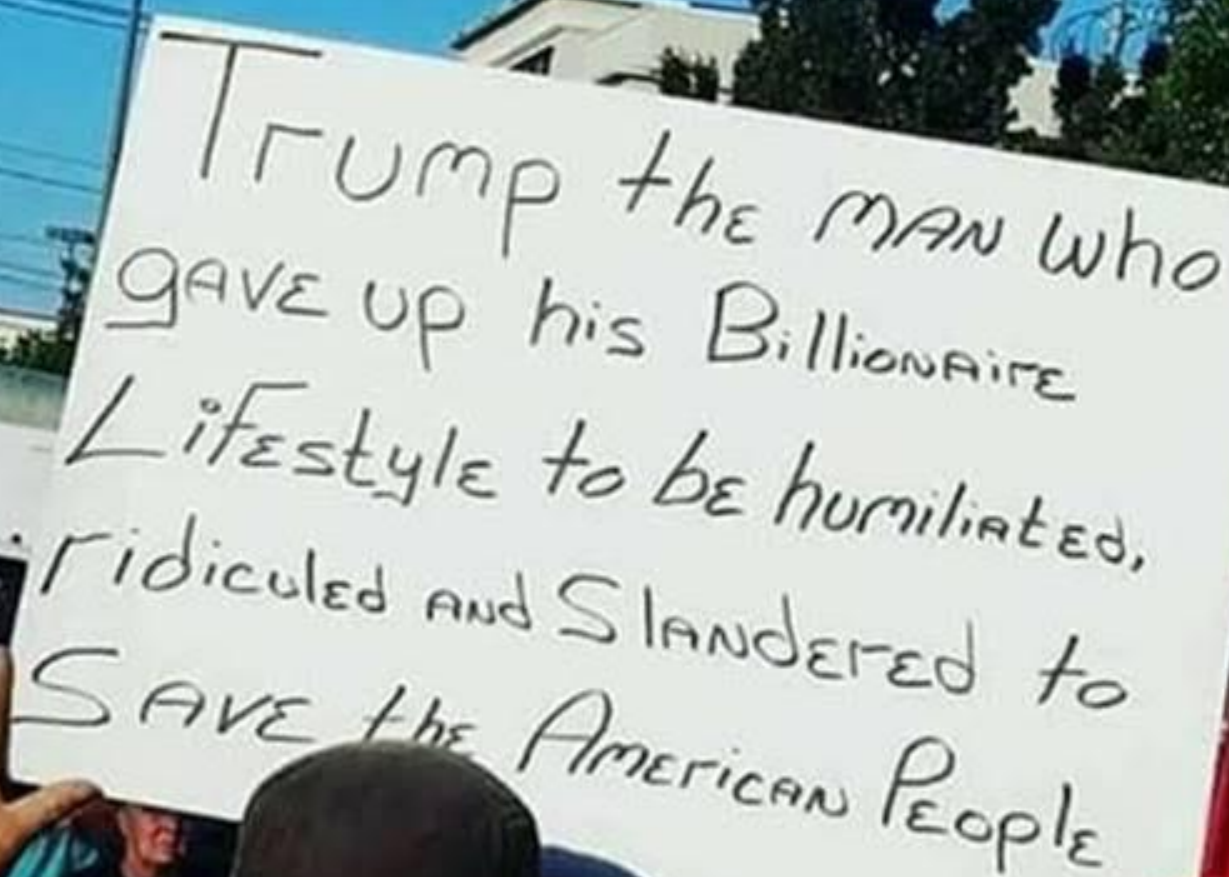 Trump the MAN who
gAVE up his BillionAirE
LifEstylE to bE humiliAtEd,
ridiculEd ANd SlANdErEd to
SAVE thE AmEricAN PEoplE